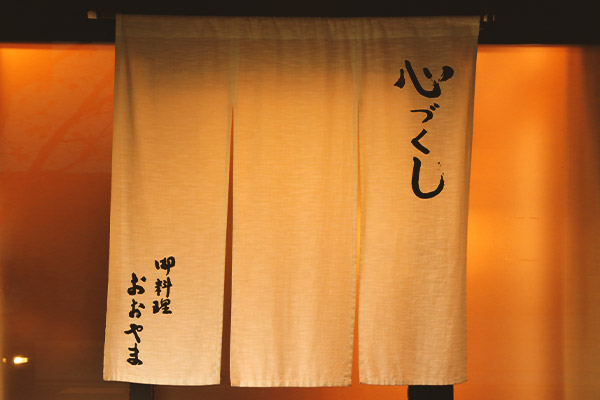 心づくし
御料理
おおやま